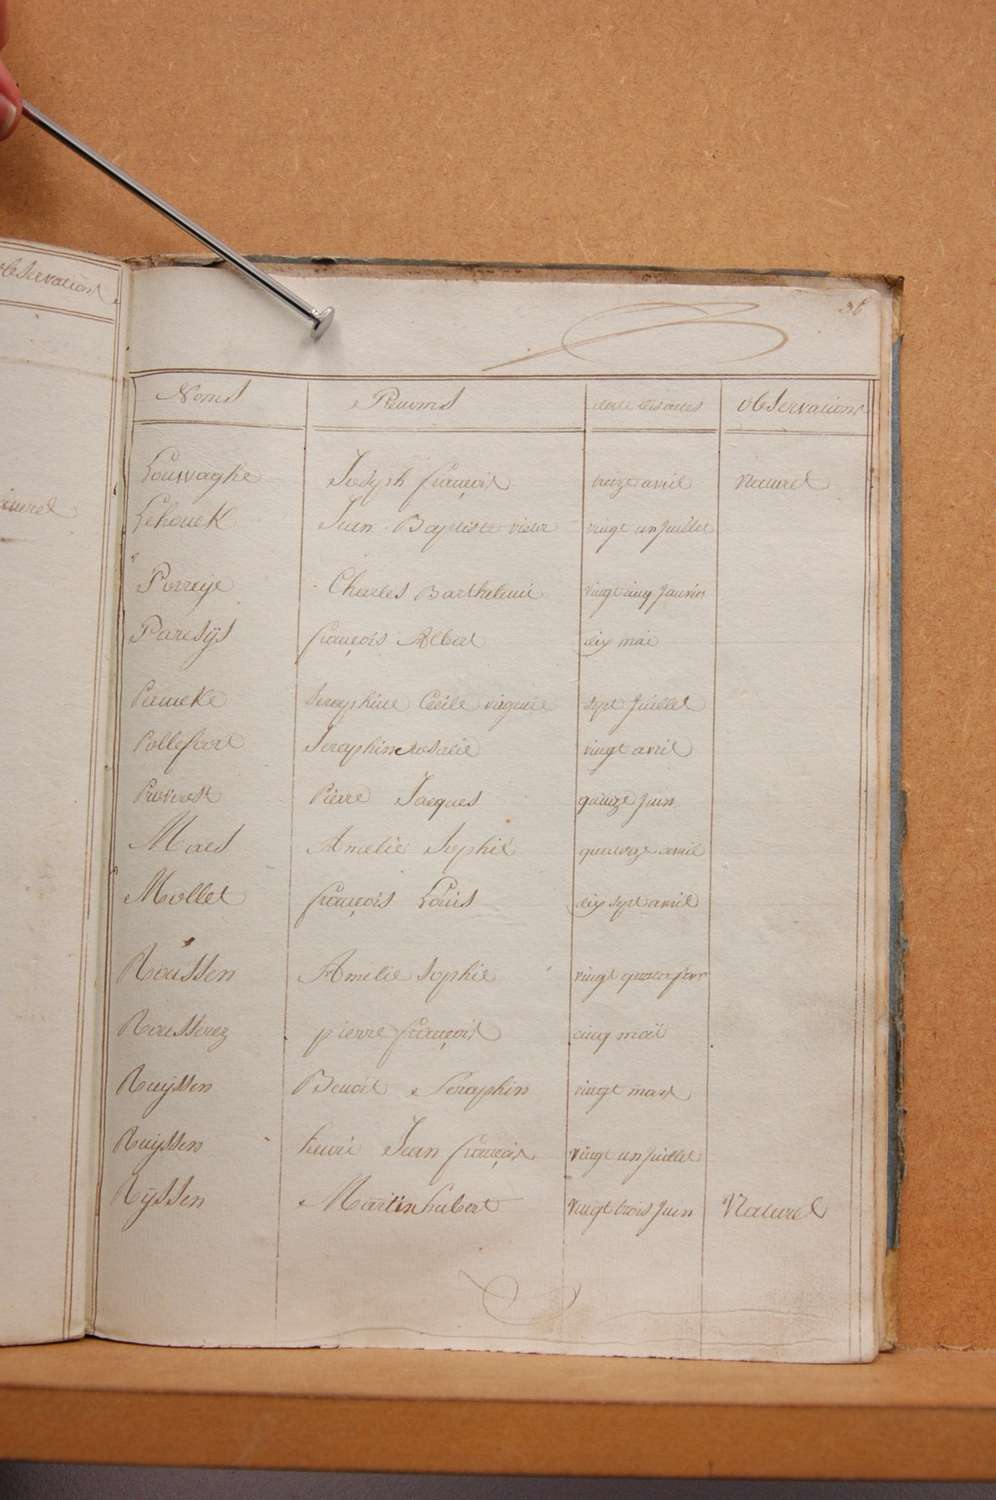 observations
36
Noms Prenoms date des actes observations
Louwaghe Joseph françois treize avril Naturel
Lehouck Jean Baptiste victor vingt un Juillet
Porreije Charles Barthelemie vingt cinq Janvier
Paresijs françois Albert dix mai
Pauneke Seraphine Cécile virginie sept Juillet
Pollefoort Seraphin Rosalie vingt avril
Provoost Pierre Jacques quinze Juin
Maes Amelie Sophie quatorze avril
Mollet françois Louis dix sept avril
Roussen Amelie Sophie vingt quatre
Rousserez pierre françois cinq mai
Ruijssen Benoit Seraphin vingt mars
Ruijssen henri Jean françois vingt un Juillet
Rijssen Martin hubert vingt trois Juin Naturel